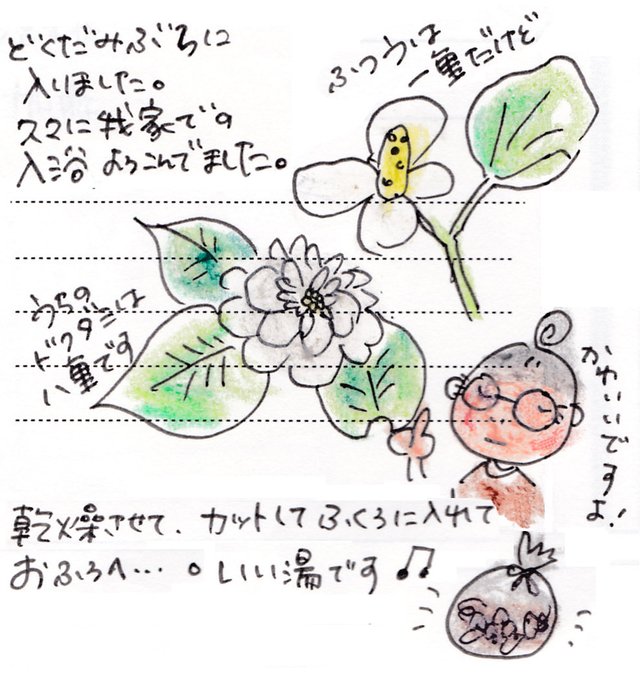 どくだみぶろに
入りました。
久々に我家での
入浴 よろこんでました。
ふつうは
一重だけど
うちの
ドクダミは
八重です
かわいいですよ!
乾燥させて、カットしてふくろに入れて
おふろへ…。いい湯です♫